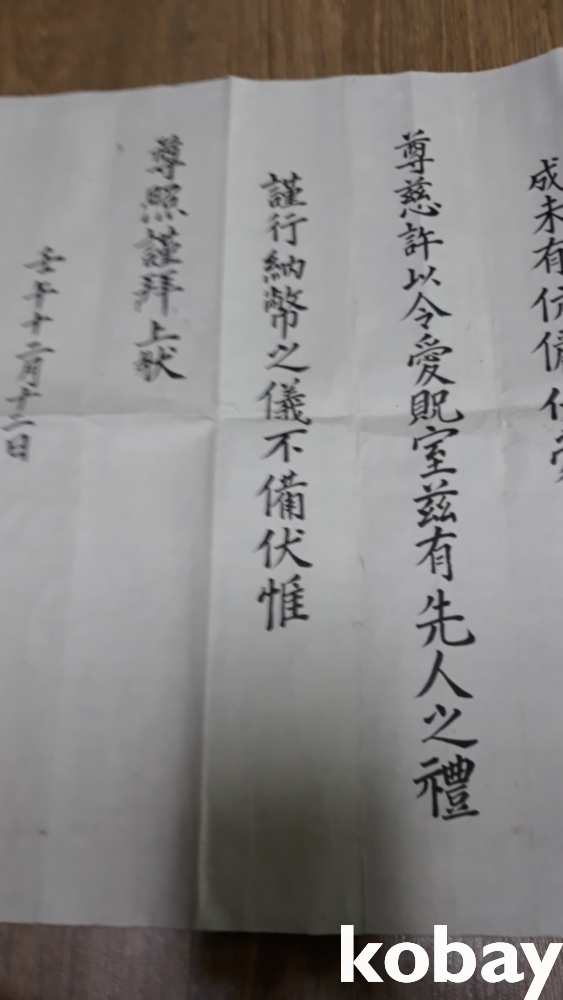 成未有伉儷伏蒙
尊慈許以令愛貺室茲有先人之禮
謹行納幣之儀不備伏惟
尊照謹拜上狀
壬午十二月十二日
kobay